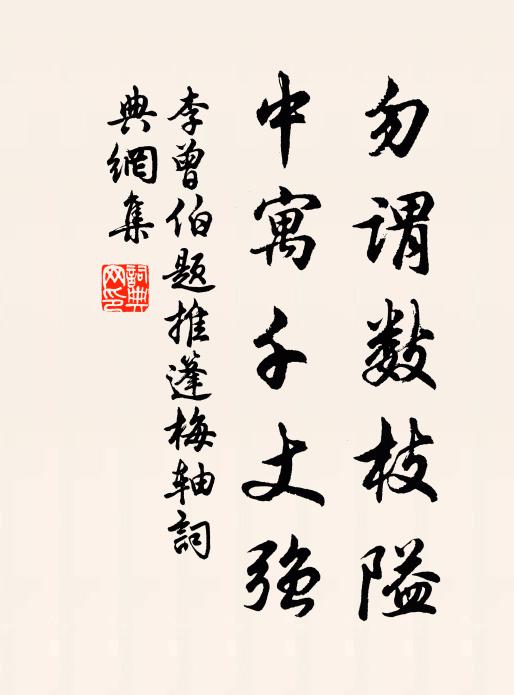 勿谓数枝隘
中寓千丈强
李曾伯题推蓬梅轴词
典網集
詞典網印